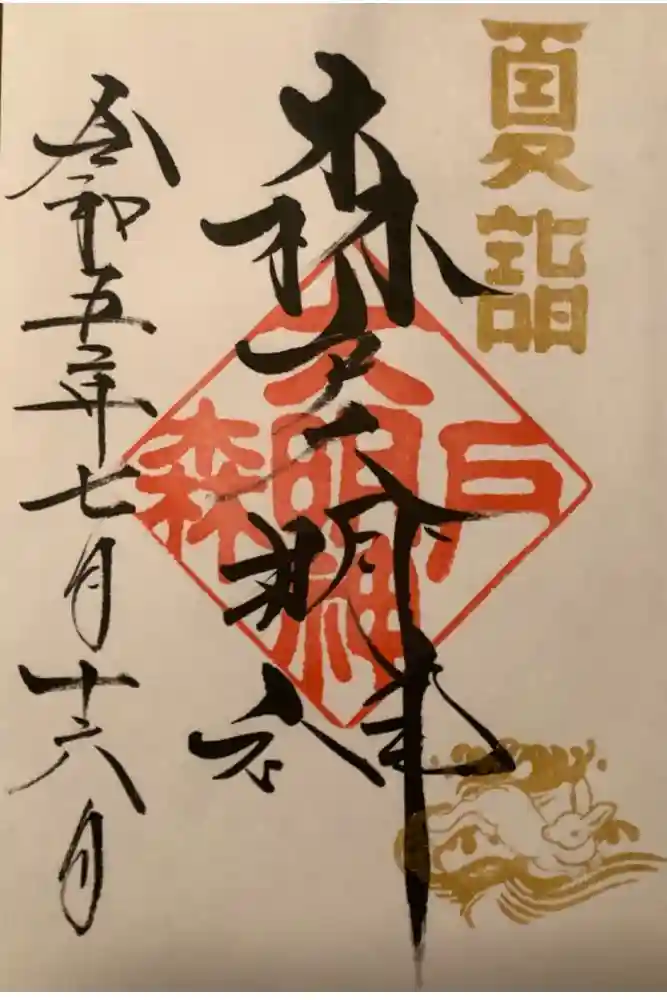 夏詣
森戸大明神
戸
大明神
森
令和五年七月十六日